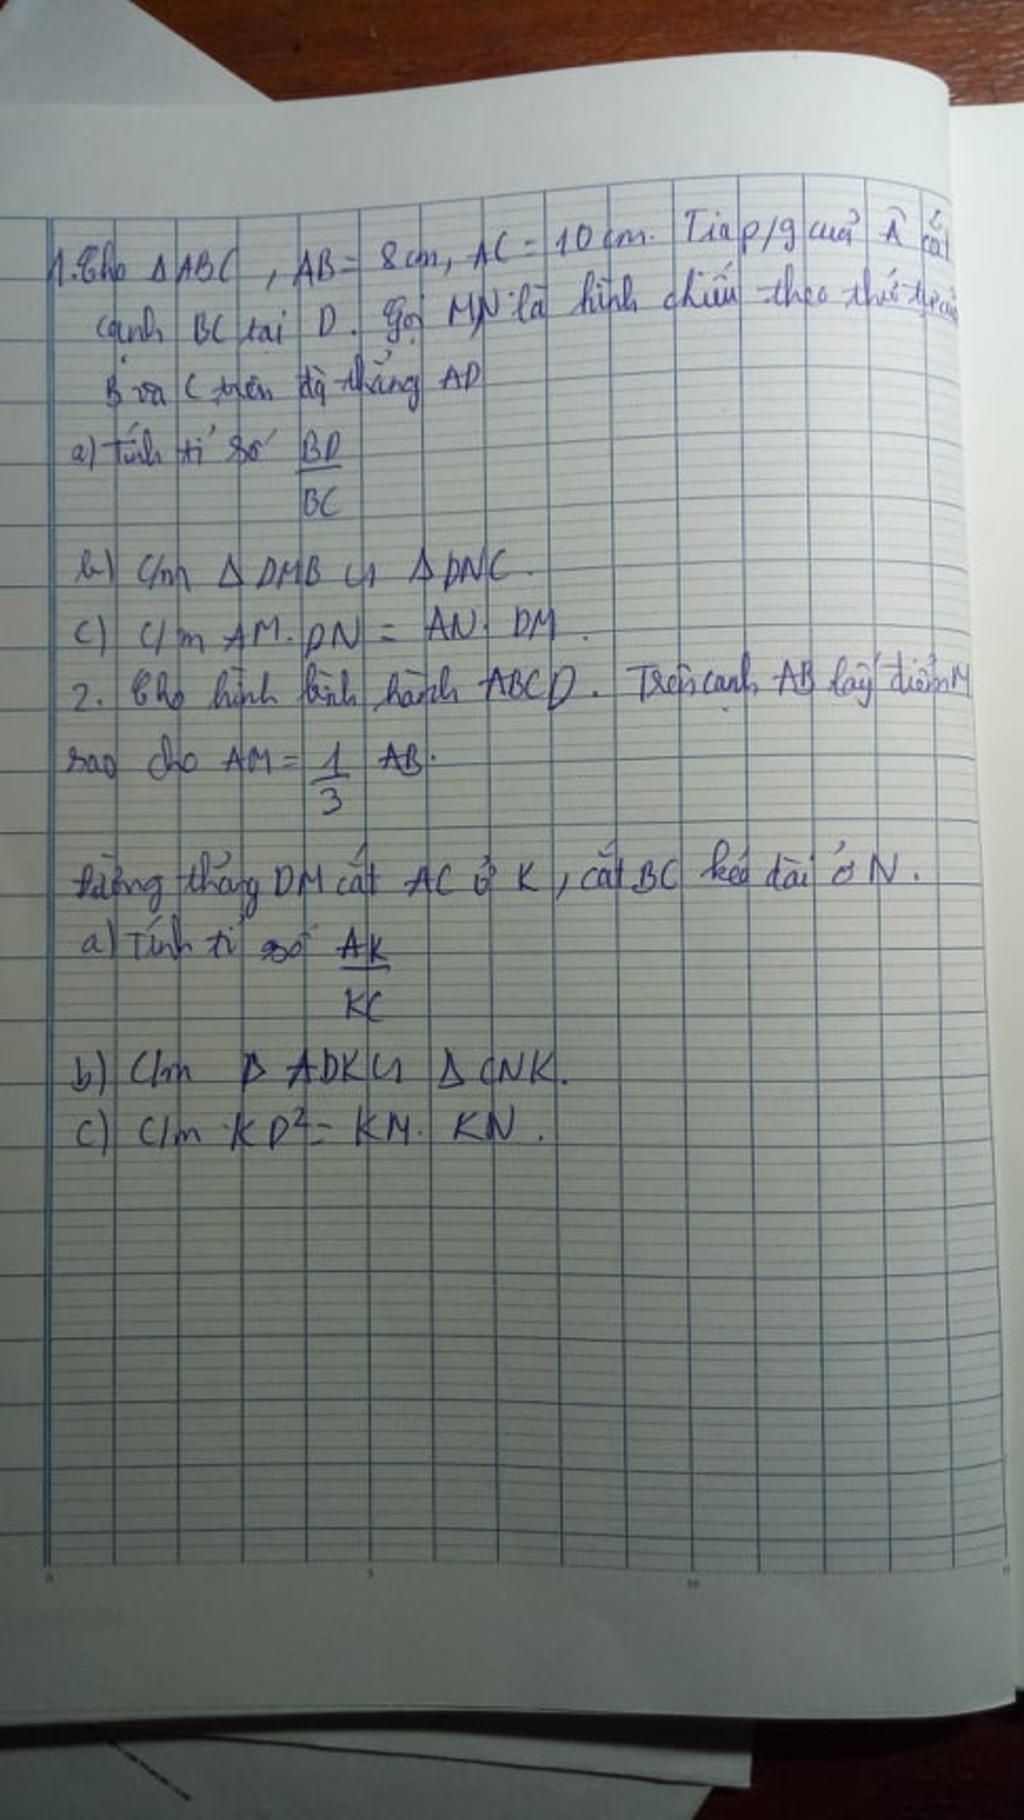 1. Cho Δ ABC, AB = 8 cm, AC = 10 cm. Tia p/g cuả Â cắt
cạnh BC tại D. Gọi M, N là hình chiếu theo thứ tự của
B và C trên đg thẳng AD
a) Tính tỉ số BD
BC
b) C/m Δ DMB ∽ Δ DNC.
c) C/m AM. DN = AN. DM.
2. Cho hình bình hành ABCD. Trên cạnh AB lấy điểm M
sao cho AM = 1 AB.
3
Đường thẳng DM cắt AC ở K, cắt BC kéo dài ở N.
a) Tính tỉ số AK
KC
b) C/m Δ ADK ∽ Δ CNK.
c) C/m KD² = KM. KN.
0 5 10